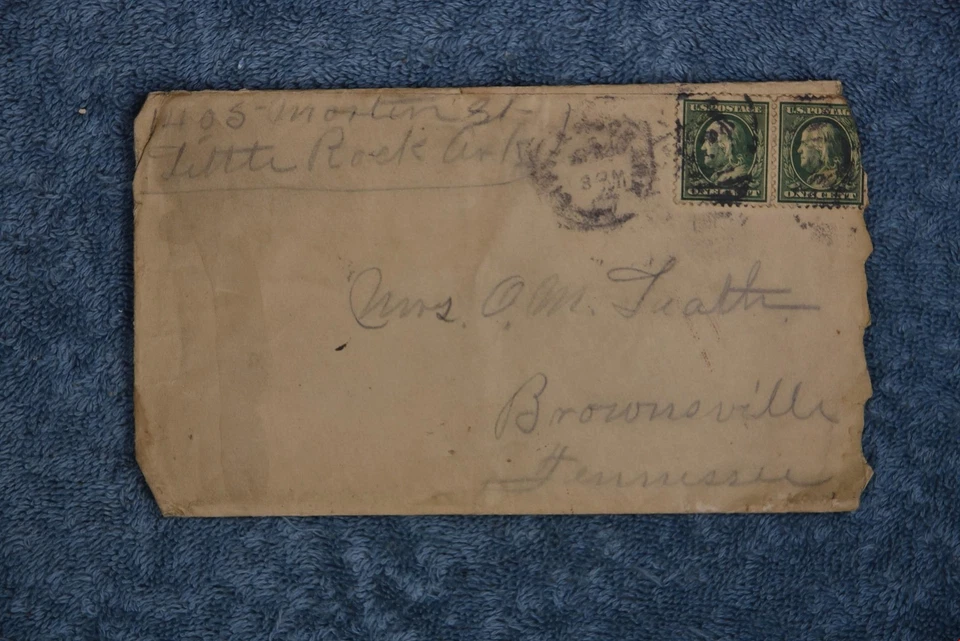 405 Morten St
Little Rock Ark
3 PM
U.S. POSTAGE
ONE CENT
U.S. POSTAGE
ONE CENT
Mrs. O. M.
Brownsville
Tennessee